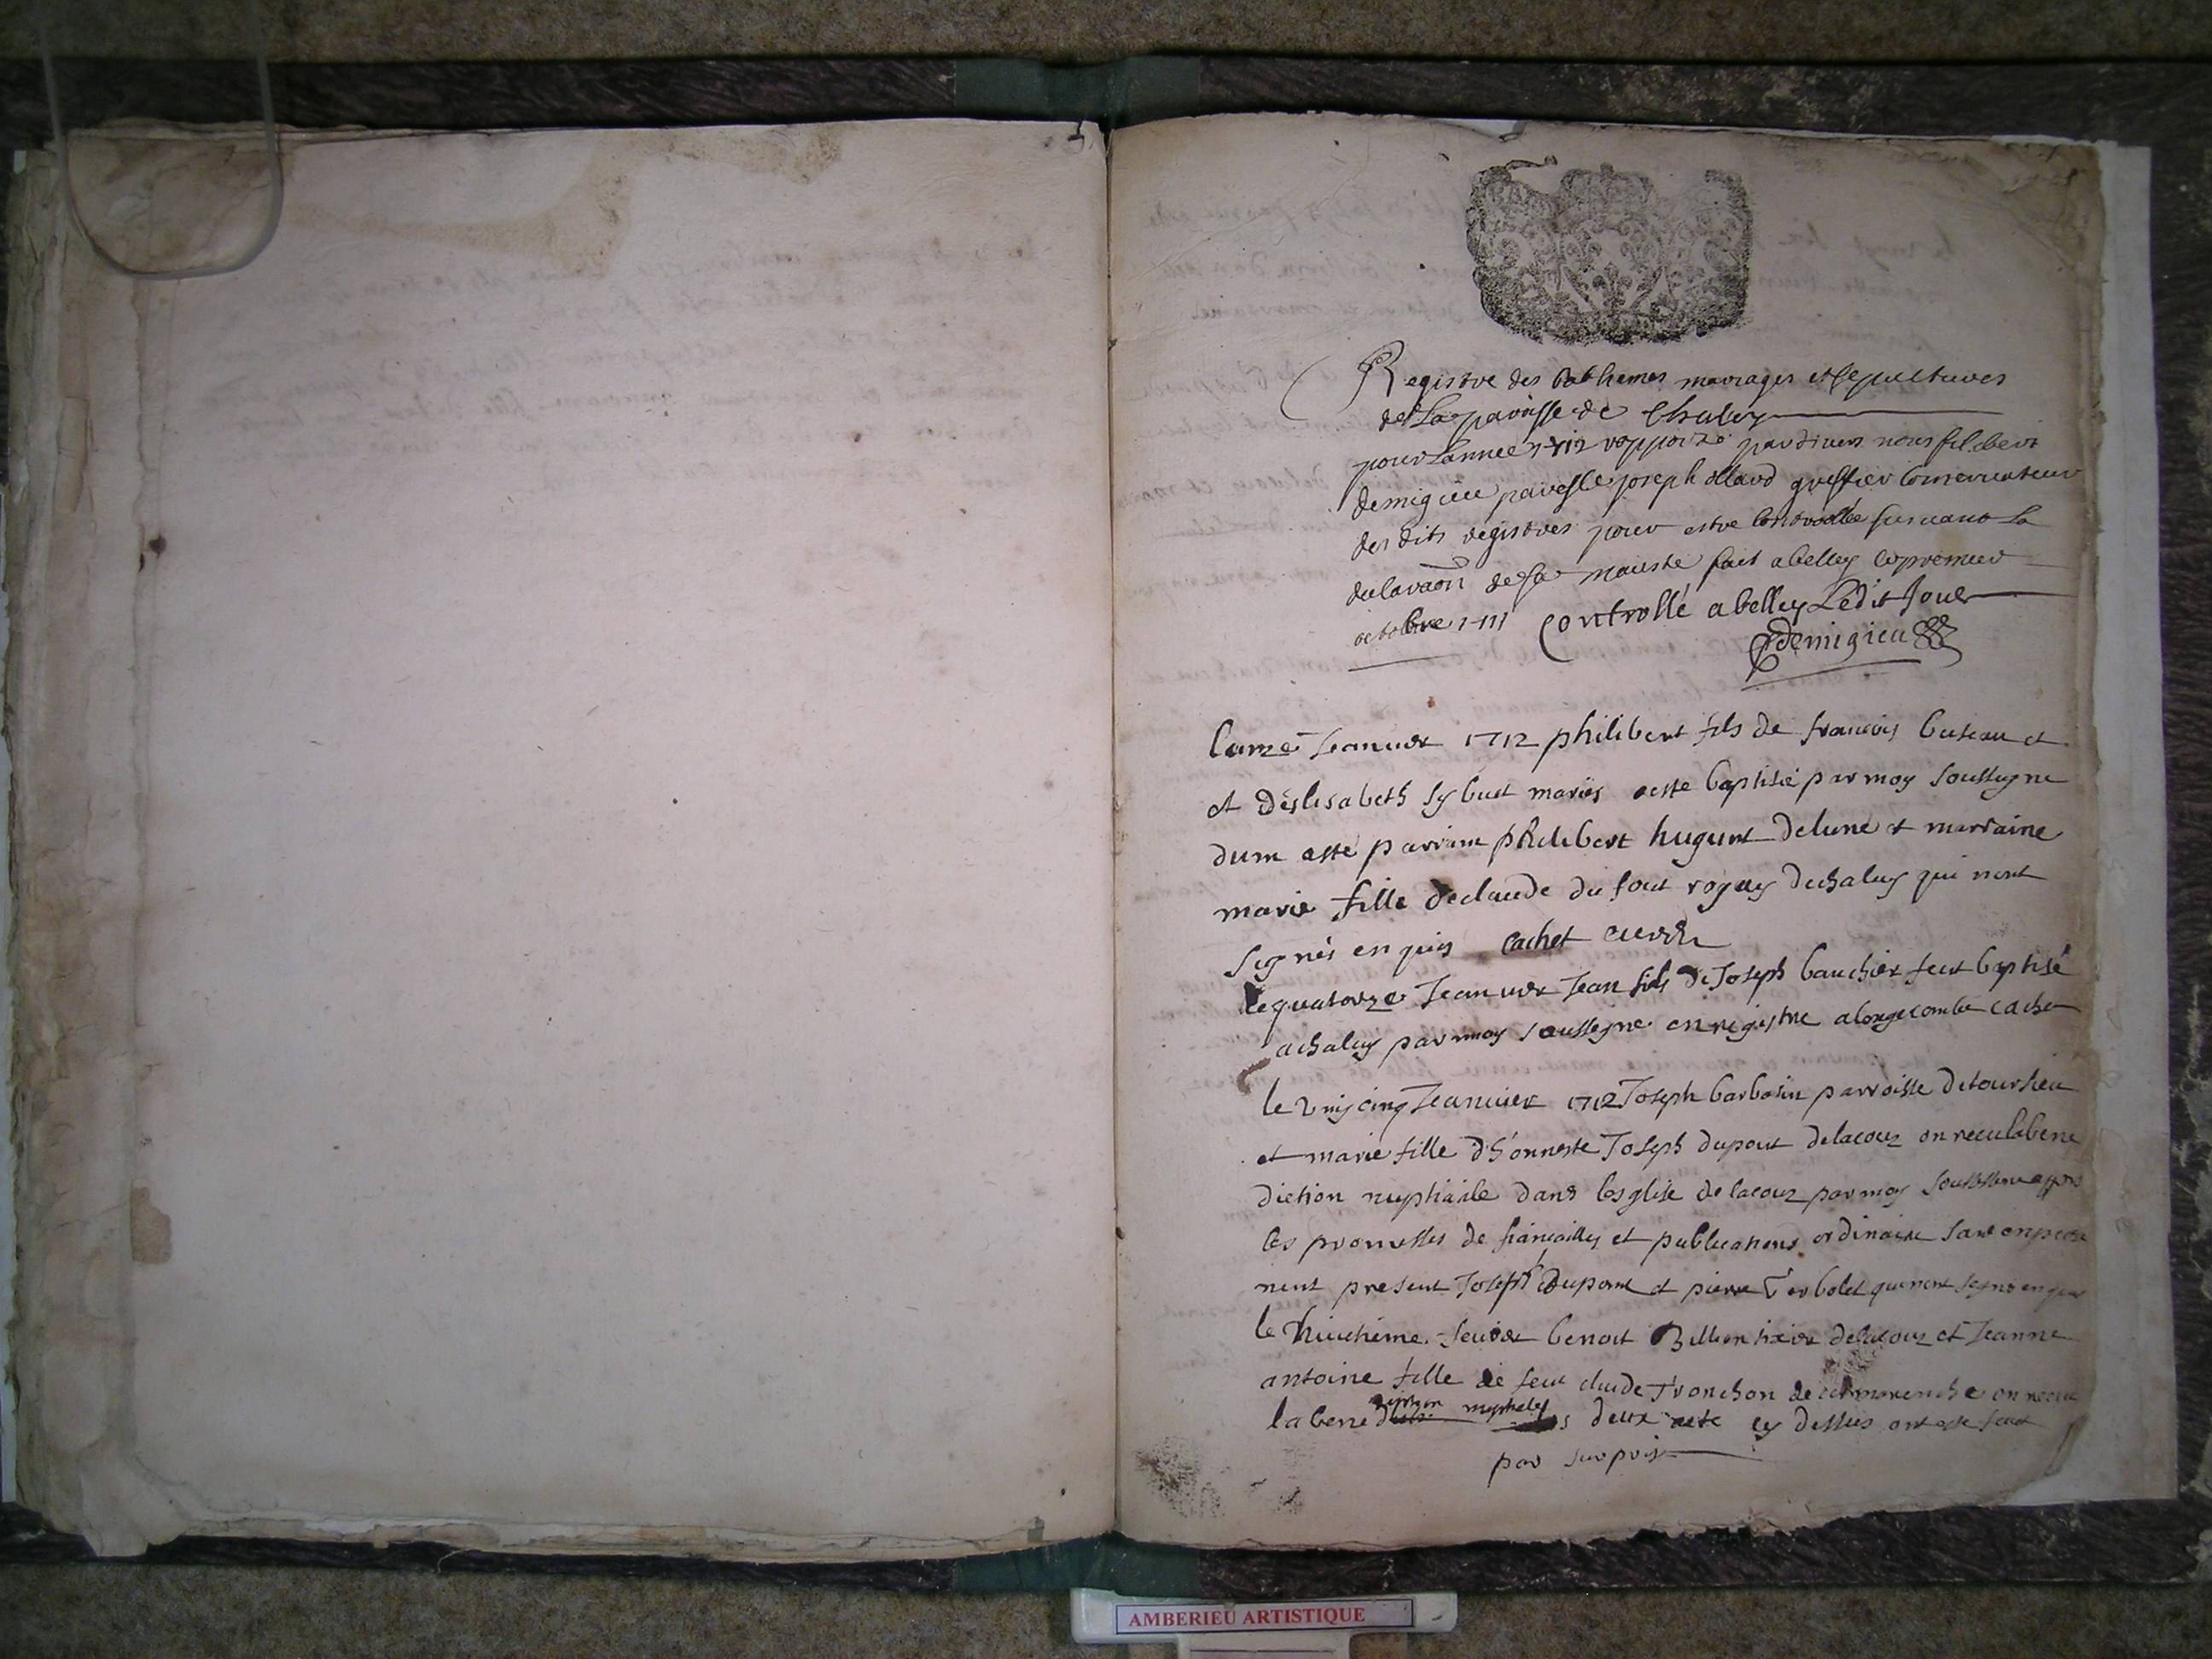 Registre des Bathemes mariages et sepultures
de La paroisse de Chaley
pour Lannee 1712 rapporté par divers nous filibert
demigieu par Me joseph ollard greffier Conservateur
des dits registres pour estre Controllée suivant La
declaraon de sa maiesté fait a belley le premier
octobre 1711 Controllé a belley Ledit Jour
demigieu
lonze Jeanvier 1712 philibert fils de francois et
et deslisabeth sybuet mariés a este baptisé par moy soussigne
dum este parrain philibert hugunt delune et marraine
marie fille de claude du fout roguy de chaley qui nont
signés enquis cachet curé
le quatorze Jeanvier Jean fils de Joseph bauchier feut baptisé
a chaley par moy soussigne enregistre a longecombe cachet
le vint cinq Jeanvier 1712 Joseph barbosin parroisse de toursieu
et marie fille d'honneste Joseph dupont delacouz on receu la bene
diction nuptiaile dans lesglise de lacouz par moy soussigne apprès
les promesses de fiançailles et publications ordinaire sans enpeche
nent present Joseph dupont et pierre qui nont signé enquis
le huictieme feuvier benoit Billion de lacouz et Jeanne
antoine fille de feue clude Tronchon de on receu
la bene diction nuptiales deux acte cy dessus ont esté
par surprise
AMBERIEU ARTISTIQUE